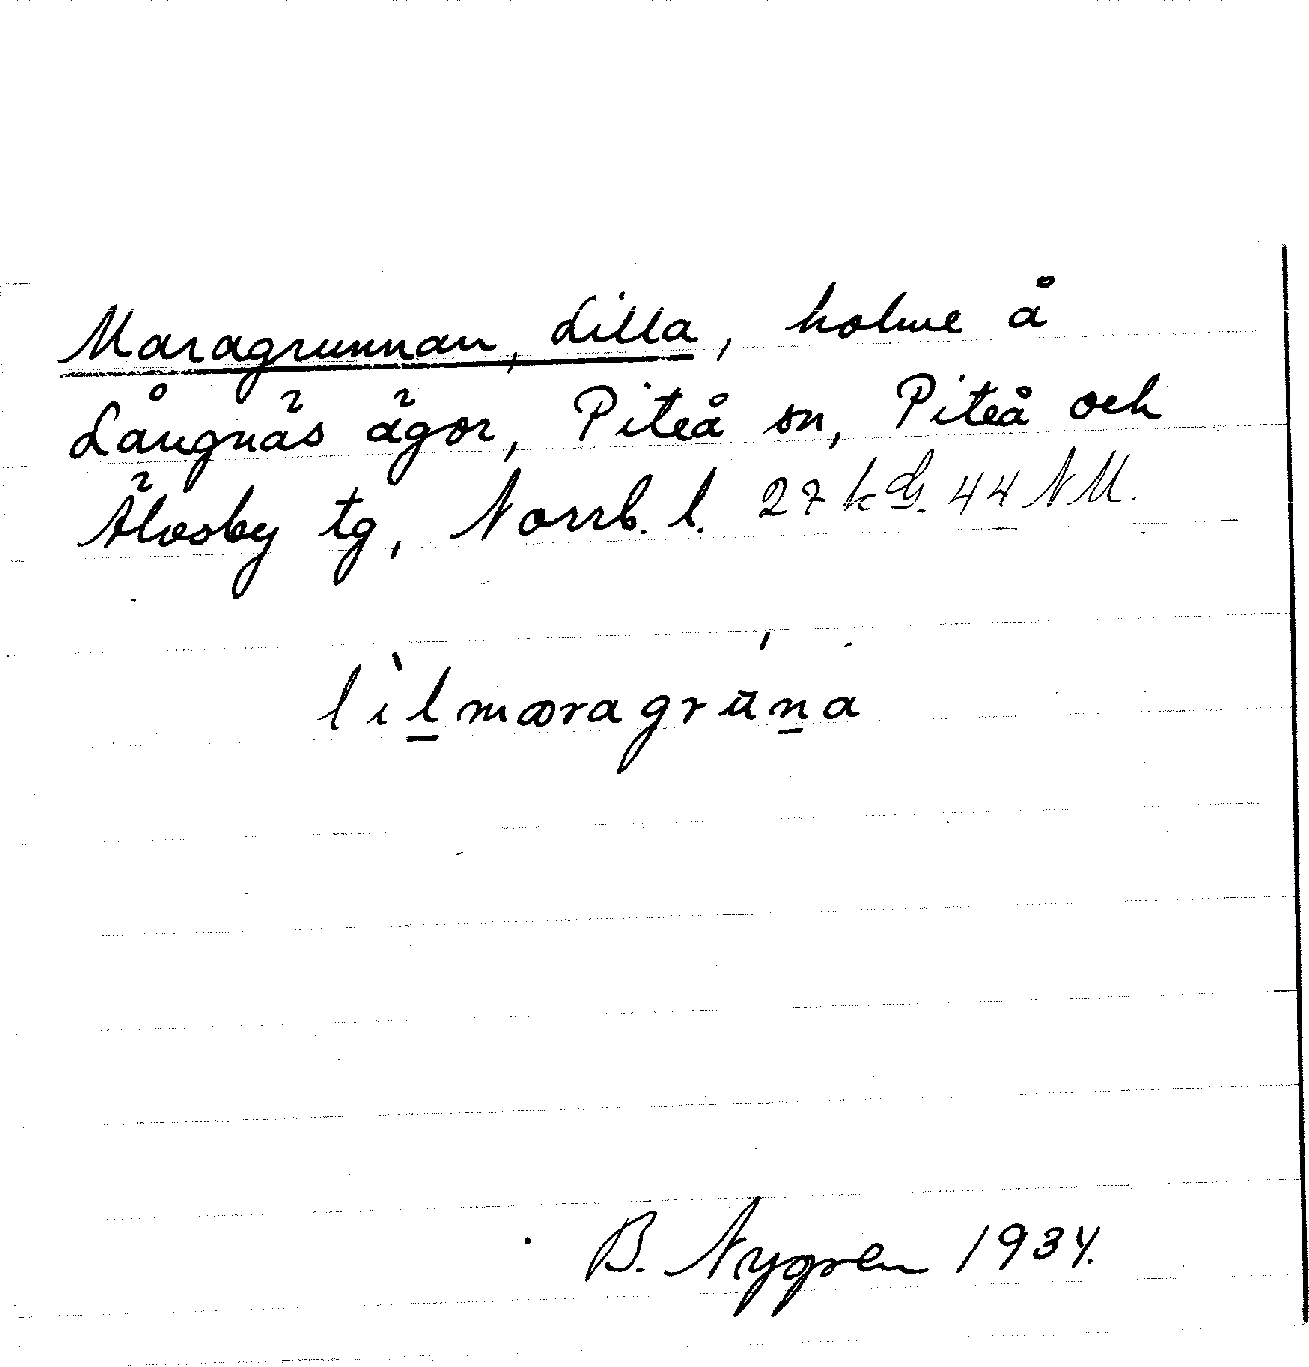 Maragrunnan, Lilla, holme å
Långnäs ägor, Piteå sn, Piteå och
Älvsby tg, Norrb. l. 27 k G. 44 NM.
lìl̲mæragrún̲a
B. Nygren 1934.